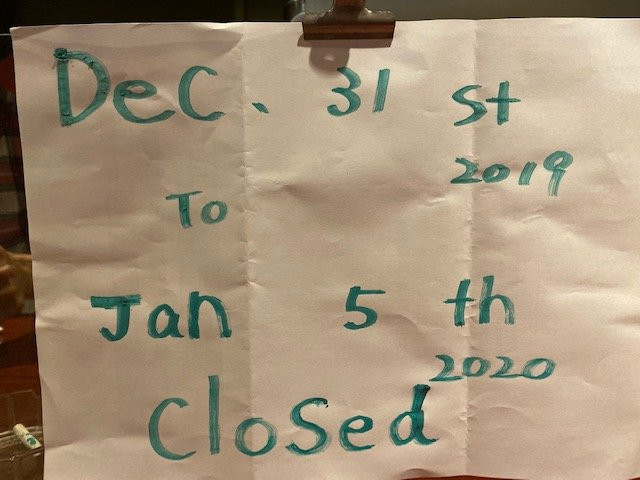 Dec. 31 st
2019
To
Jan 5 th
2020
Closed